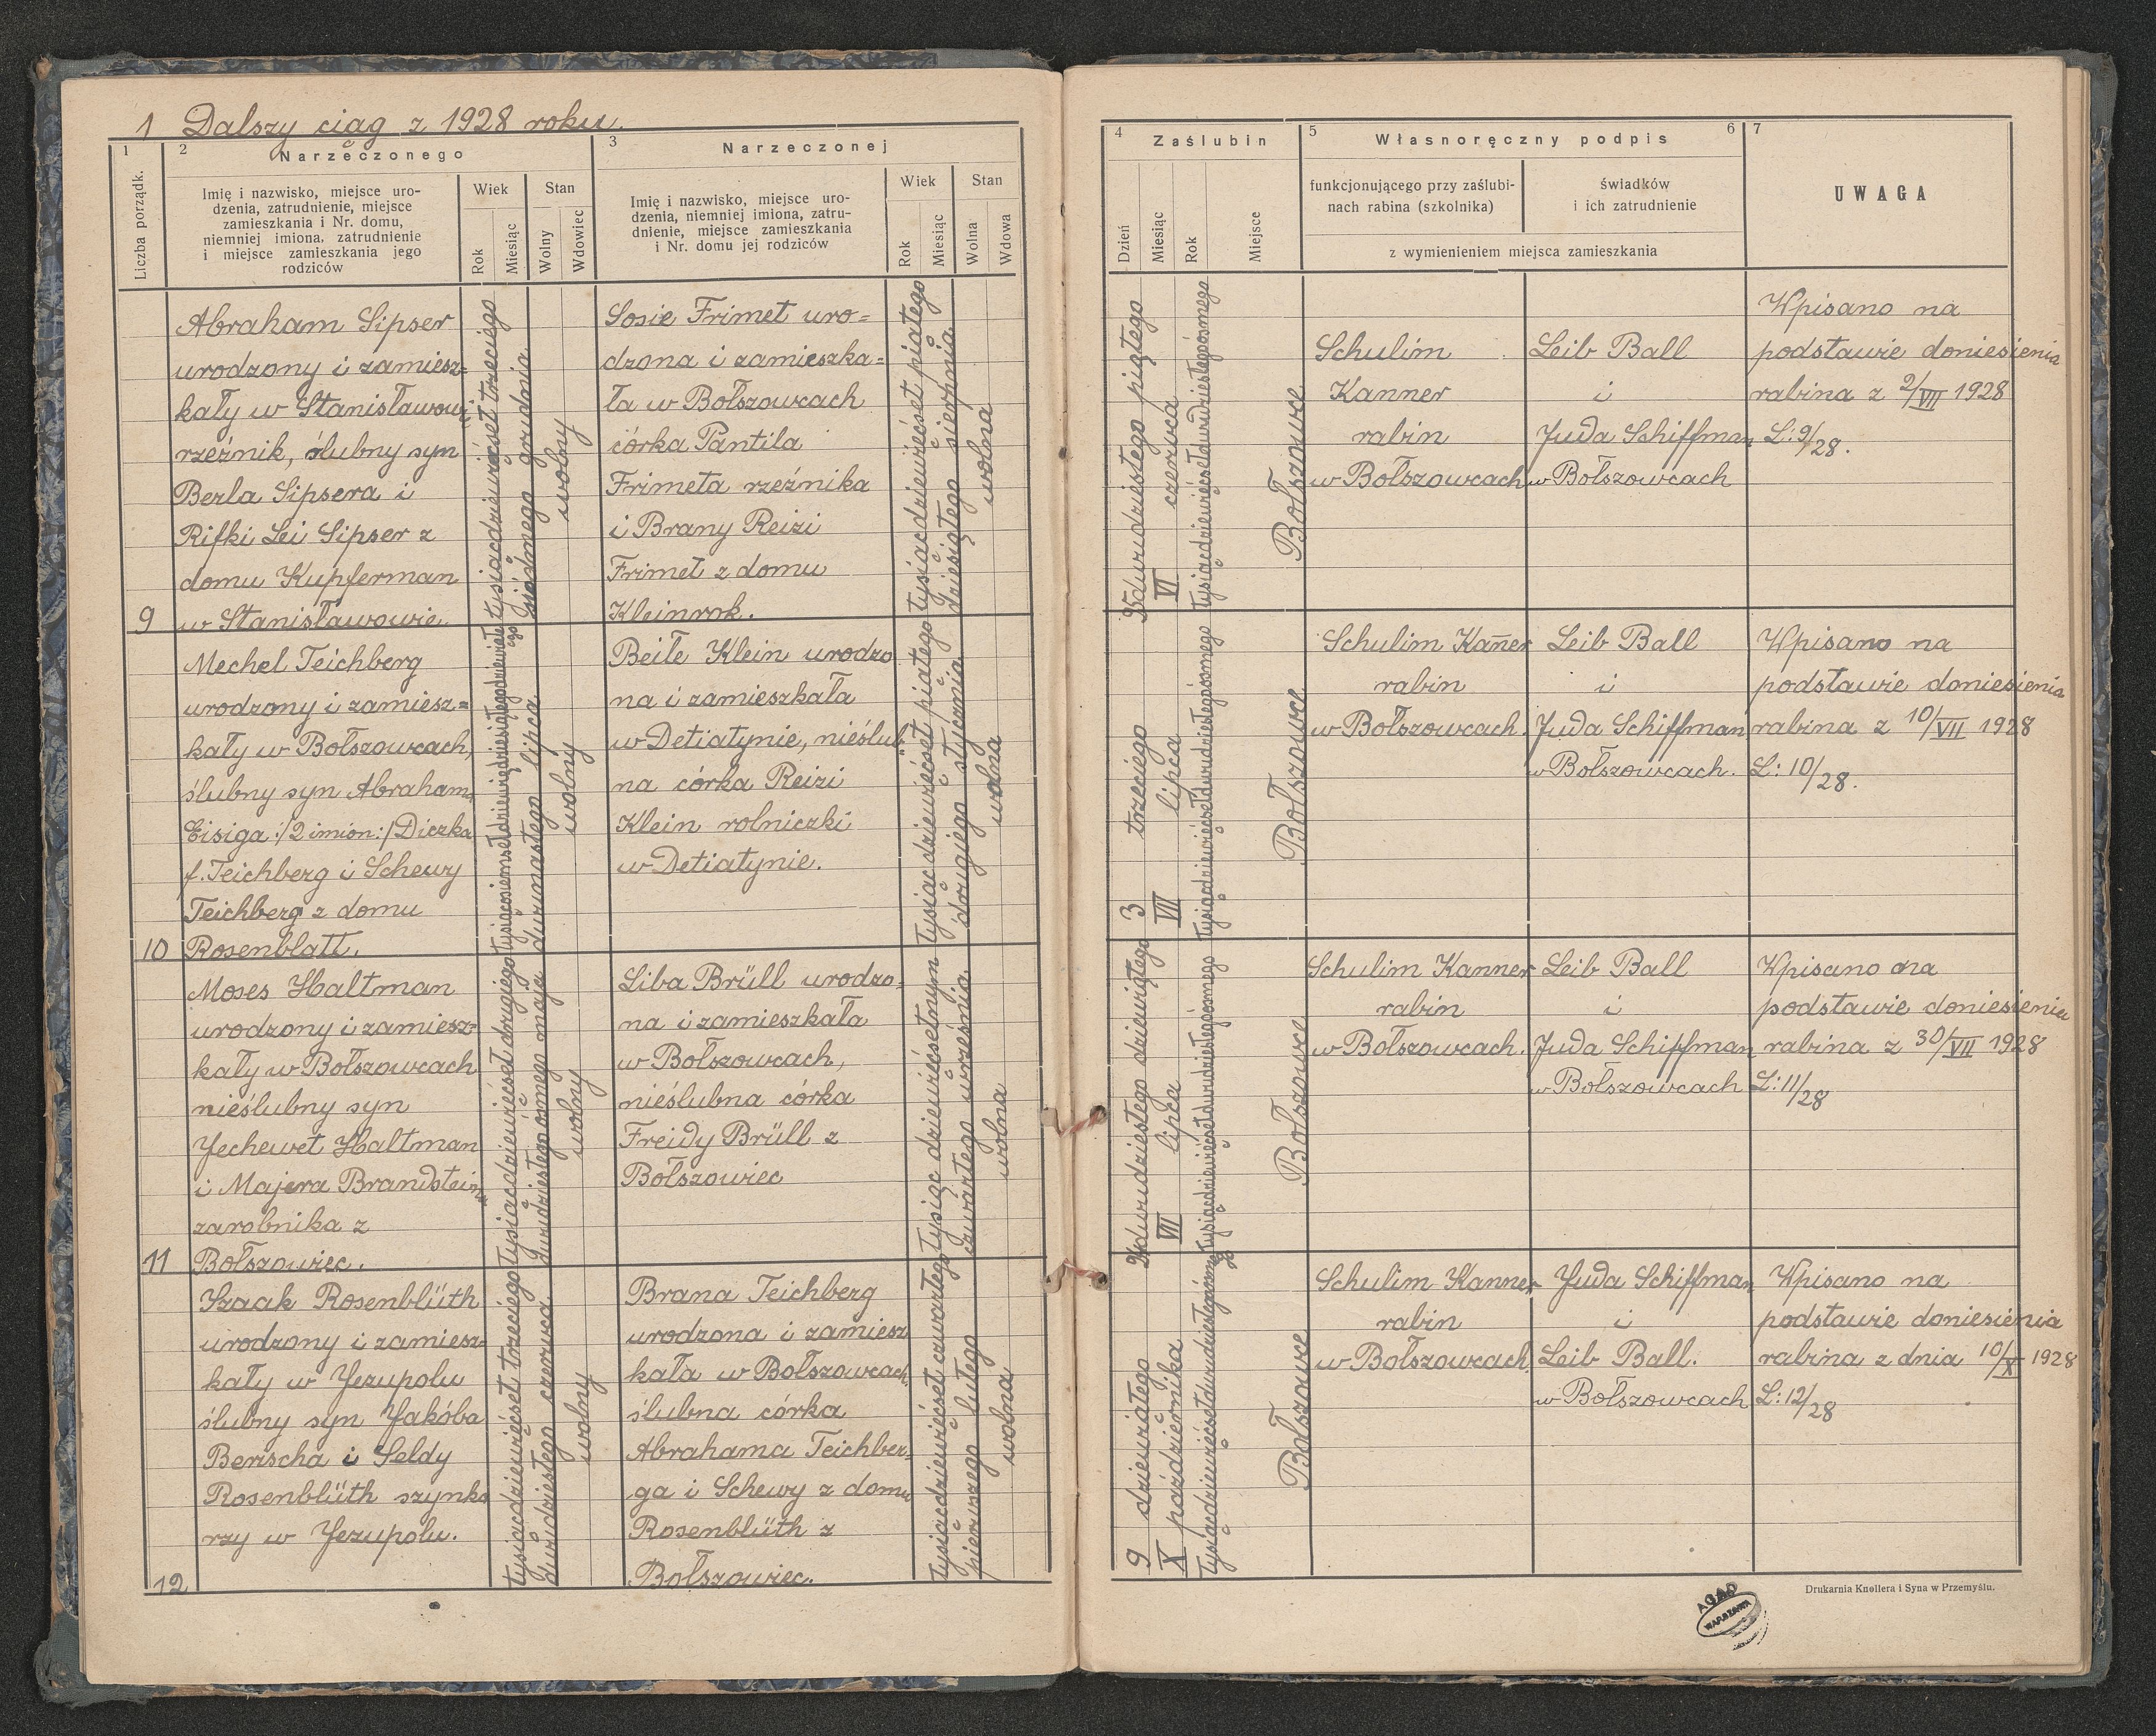 1 Dalszy ciąg z 1928 roku.
1
2
Narzeczonego
3
Narzeczonej
Liczba porządk.
Imię i nazwisko, miejsce uro-
dzenia, zatrudnienie, miejsce
zamieszkania i Nr. domu,
niemniej imiona, zatrudnienie
i miejsce zamieszkania jego
rodziców
Wiek
Stan
Rok
Miesiąc
Wolny
Wdowiec
Imię i nazwisko, miejsce uro-
dzenia, niemniej imiona, zatru-
dnienie, miejsce zamieszkania
i Nr. domu jej rodziców
Wiek
Stan
Rok
Miesiąc
Wolna
Wdowa
4
Zaślubin
Dzień
Miesiąc
Rok
Miejsce
5
Własnoręczny podpis
6
funkcjonującego przy zaślubi-
nach rabina (szkolnika)
świadków
i ich zatrudnienie
z wymienieniem miejsca zamieszkania
7
UWAGA
9
Abraham Sipser
urodzony i zamiesz=
kały w Stanisławowi
rzeźnik, ślubny syn
Berla Sipsera i
Rifki Lei Sipser z
domu Kupferman
w Stanisławowie.
tysiącdziewięćset trzeciego
siódmego grudnia
wolny
Sosie Frimet uro=
dzona i zamieszka=
ła w Bołszowcach
córka Pantila
Frimeta rzeźnika
i Brany Reizi
Frimet z domu
Kleinrok.
tysiącdziewięćset piątego
dziesiątego sierpnia
wolna
25 dwudziestego piątego
VI czerwca
tysiącdziewięćsetdwudziestegoósmego
Bołszowce
Schulim
Kanner
rabin
w Bołszowcach
Leib Ball
i
Juda Schiffman
w Bołszowcach
Wpisano na
podstawie doniesienia
rabina z 2/VII 1928
L: 9/28.
10
Mechel Teichberg
urodzony i zamiesz=
kały w Bołszowcach,
ślubny syn Abrahama
Eisiga :/2 imion:/ Diczka
f. Teichberg i Schewy
Teichberg z domu
Rosenblatt.
tysiącosiemsetdziewiędziesiątegodziewiątego
dwunastego lipca
wolny
Beile Klein urodzo
na i zamieszkała
w Detiatynie, nieślub=
na córka Reizi
Klein rolniczki
w Detiatynie.
tysiącdziewięćset piątego
drugiego stycznia
wolna
3 trzeciego
VII lipca
tysiącdziewięćsetdwudziestegoósmego
Bołszowce
Schulim Kan̄er
rabin
w Bołszowcach.
Leib Ball
i
Juda Schiffman
w Bołszowcach.
Wpisano na
podstawie doniesienia
rabina z 10/VII 1928
L: 10/28.
11
Moses Haltman
urodzony i zamiesz=
kały w Bołszowcach
nieślubny syn
Jechewet Haltman
i Majera Brandsteina
zarobnika z
Bołszowiec.
tysiącdziewięćset drugiego
dwudziestego ósmego maja
wolny
Liba Brüll urodzo=
na i zamieszkała
w Bołszowcach,
nieślubna córka
Freidy Brüll z
Bołszowiec
tysiąc dziewięćsetnym
czwartego września
wolna
29 dwudziestego dziewiątego
VII lipca
tysiącdziewięćsetdwudziestegoósmego
Bołszowce
Schulim Kanner
rabin
w Bołszowcach.
Leib Ball
i
Juda Schiffman
w Bołszowcach
Wpisano na
podstawie doniesienia
rabina z 30/VII 1928
L: 11/28
12
Izaak Rosenblüth
urodzony i zamiesz=
kały w Jezupolu
ślubny syn Jakóba
Berischa i Seldy
Rosenblüth szynka
rzy w Jezupolu.
tysiącdziewięćset trzeciego
dwudziestego czerwca
wolny
Brana Teichberg
urodzona i zamiesz
kała w Bołszowcach
ślubna córka
Abrahama Teichber=
ga i Schewy z domu
Rosenblüth z
Bołszowiec.
tysiącdziewięćset czwartego
pierwszego lutego
wolna
9 dziewiątego
X października
tysiącdziewięćsetdwudziestegoósmego
Bołszowce
Schulim Kanner
rabin
w Bołszowcach
Juda Schiffman
i
Leib Ball.
w Bołszowcach
Wpisano na
podstawie doniesienia
rabina z dnia 10/X 1928
L: 12/28
Drukarnia Knollera i Syna w Przemyślu.
AGAD
WARSZAWA